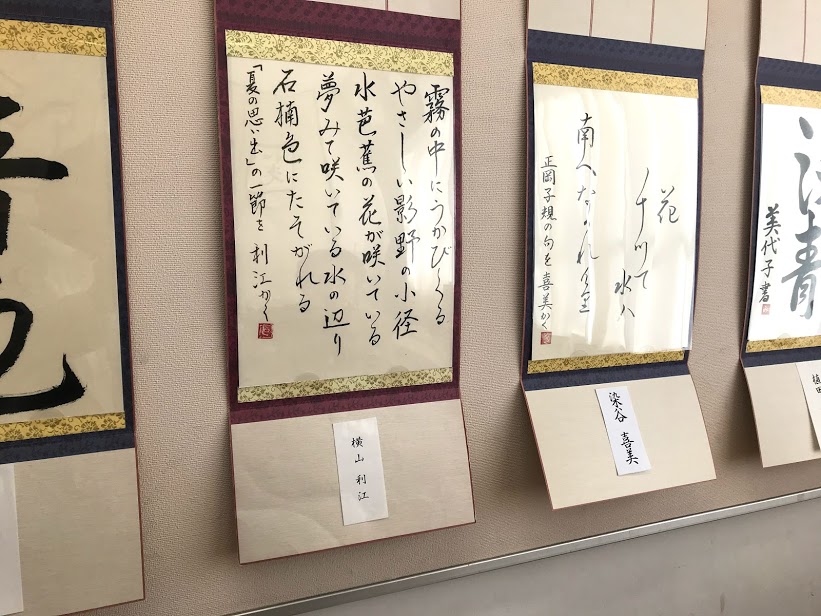 美代子書
花
ちつて
水ハ
南へながれけり
正岡子規の句を 喜美かく
染谷 喜美
霧の中にうかびくる
やさしい影野の小径
水芭蕉の花が咲いている
夢みて咲いている水の辺り
石楠色にたそがれる
「夏の思い出」の一節を 利江かく
横山 利江